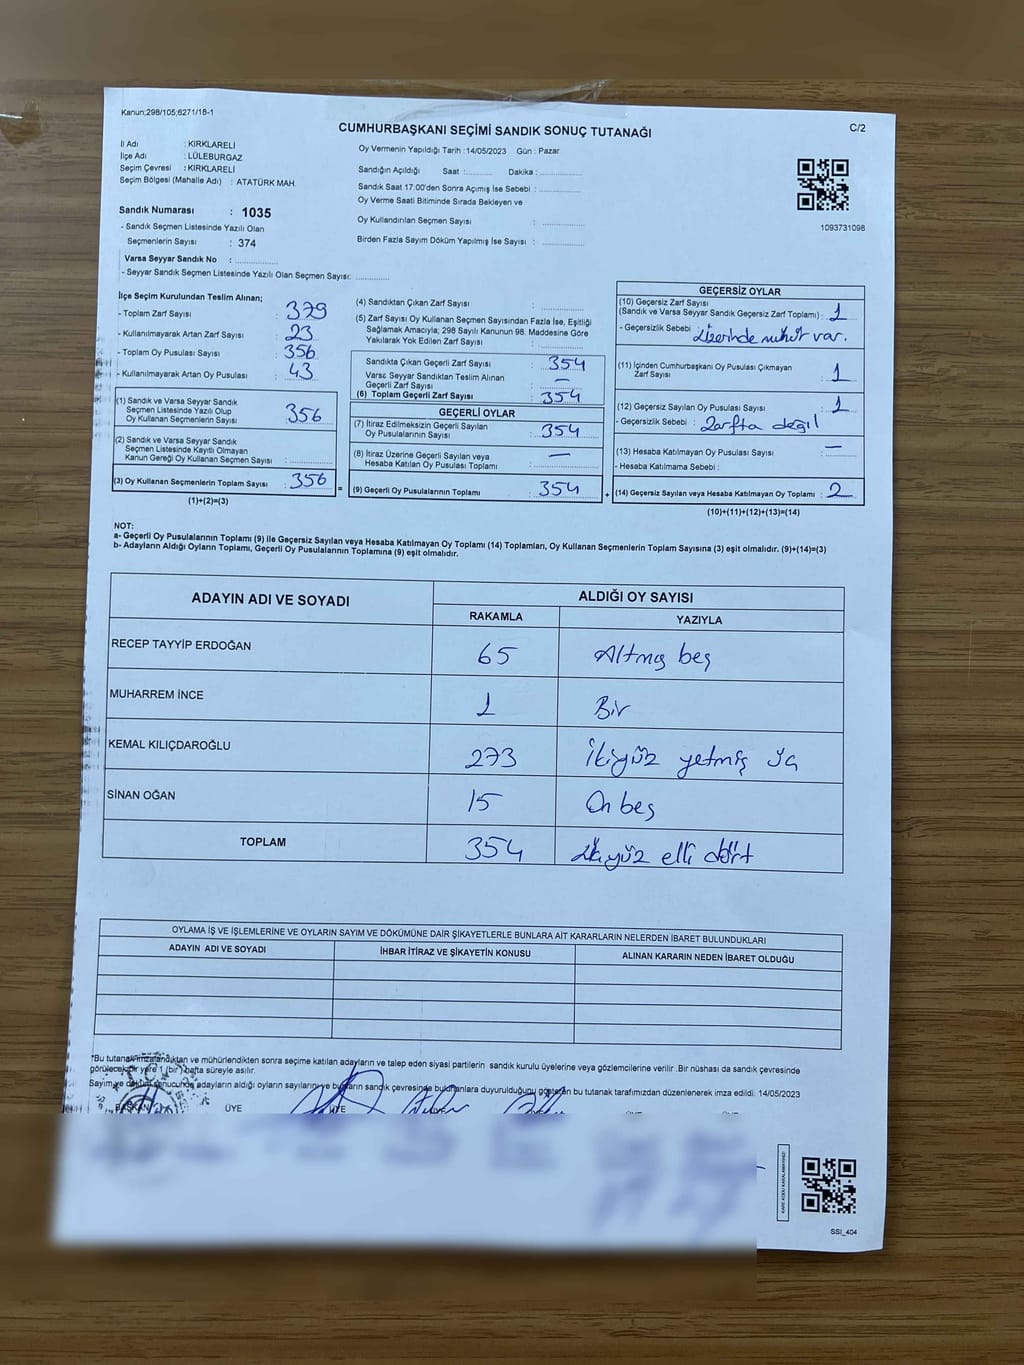 Kanun;298/105;6271/18-1
C/2
CUMHURBAŞKANI SEÇİMİ SANDIK SONUÇ TUTANAĞI
İl Adı : KIRKLARELİ
İlçe Adı : LÜLEBURGAZ
Seçim Çevresi : KIRKLARELİ
Seçim Bölgesi (Mahalle Adı) : ATATÜRK MAH.
Oy Vermenin Yapıldığı Tarih :14/05/2023 Gün : Pazar
Sandığın Açıldığı Saat :........ Dakika :............
Sandık Saat 17:00'den Sonra Açımış İse Sebebi :............
Oy Verme Saati Bitiminde Sırada Bekleyen ve
Oy Kullandırılan Seçmen Sayısı : ............
Birden Fazla Sayım Döküm Yapılmış İse Sayısı : ............
1093731098
Sandık Numarası : 1035
- Sandık Seçmen Listesinde Yazılı Olan
Seçmenlerin Sayısı : 374
Varsa Seyyar Sandık No : ............
- Seyyar Sandık Seçmen Listesinde Yazılı Olan Seçmen Sayısı: ..........
İlçe Seçim Kurulundan Teslim Alınan;
- Toplam Zarf Sayısı : 379
- Kullanılmayarak Artan Zarf Sayısı : 23
- Toplam Oy Pusulası Sayısı : 356
- Kullanılmayarak Artan Oy Pusulası : 43
(1) Sandık ve Varsa Seyyar Sandık
Seçmen Listesinde Yazılı Olup
Oy Kullanan Seçmenlerin Sayısı : 356
(2) Sandık ve Varsa Seyyar Sandık
Seçmen Listesinde Kayıtlı Olmayan
Kanun Gereği Oy Kullanan Seçmen Sayısı :............
(3) Oy Kullanan Seçmenlerin Toplam Sayısı : 356
(1)+(2)=(3)
=
(4) Sandıktan Çıkan Zarf Sayısı : ............
(5) Zarf Sayısı Oy Kullanan Seçmen Sayısından Fazla İse, Eşitliği
Sağlamak Amacıyla; 298 Sayılı Kanunun 98. Maddesine Göre
Yakılarak Yok Edilen Zarf Sayısı : ............
Sandıkta Çıkan Geçerli Zarf Sayısı : 354
Varsa Seyyar Sandıktan Teslim Alınan
Geçerli Zarf Sayısı : —
(6) Toplam Geçerli Zarf Sayısı : 354
GEÇERLİ OYLAR
(7) İtiraz Edilmeksizin Geçerli Sayılan
Oy Pusulalarının Sayısı : 354
(8) İtiraz Üzerine Geçerli Sayılan veya
Hesaba Katılan Oy Pusulası Toplamı : —
(9) Geçerli Oy Pusulalarının Toplamı : 354
+
GEÇERSİZ OYLAR
(10) Geçersiz Zarf Sayısı
(Sandık ve Varsa Seyyar Sandık Geçersiz Zarf Toplamı) : 1
- Geçersizlik Sebebi : Üzerinde mühür var.
(11) İçinden Cumhurbaşkanı Oy Pusulası Çıkmayan
Zarf Sayısı : 1
(12) Geçersiz Sayılan Oy Pusulası Sayısı : 1
- Geçersizlik Sebebi : Zarfta değil
(13) Hesaba Katılmayan Oy Pusulası Sayısı : —
- Hesaba Katılmama Sebebi :
(14) Geçersiz Sayılan veya Hesaba Katılmayan Oy Toplamı : 2
(10)+(11)+(12)+(13)=(14)
NOT:
a- Geçerli Oy Pusulalarının Toplamı (9) ile Geçersiz Sayılan veya Hesaba Katılmayan Oy Toplamı (14) Toplamları, Oy Kullanan Seçmenlerin Toplam Sayısına (3) eşit olmalıdır. (9)+(14)=(3)
b- Adayların Aldığı Oyların Toplamı, Geçerli Oy Pusulalarının Toplamına (9) eşit olmalıdır.
ADAYIN ADI VE SOYADI
ALDIĞI OY SAYISI
RAKAMLA YAZIYLA
RECEP TAYYİP ERDOĞAN 65 Altmış beş
MUHARREM İNCE 1 Bir
KEMAL KILIÇDAROĞLU 273 İkiyüz yetmiş üç
SİNAN OĞAN 15 On beş
TOPLAM 354 Üçyüz elli dört
OYLAMA İŞ VE İŞLEMLERİNE VE OYLARIN SAYIM VE DÖKÜMÜNE DAİR ŞİKAYETLERLE BUNLARA AİT KARARLARIN NELERDEN İBARET BULUNDUKLARI
ADAYIN ADI VE SOYADI İHBAR İTİRAZ VE ŞİKAYETİN KONUSU ALINAN KARARIN NEDEN İBARET OLDUĞU
*Bu tutanak imzalandıktan ve mühürlendikten sonra seçime katılan adayların ve talep eden siyasi partilerin sandık kurulu üyelerine veya gözlemcilerine verilir .Bir nüshası da sandık çevresinde
görülecek bir yere 1 (bir) hafta süreyle asılır.
Sayım ve döküm sonucunda adayların aldığı oyların sayılarını ve bunların sandık çevresinde bulunanlara duyurulduğunu gösteren bu tutanak tarafımızdan düzenlenerek imza edildi. 14/05/2023
BAŞKAN ÜYE ÜYE
SSİ_404